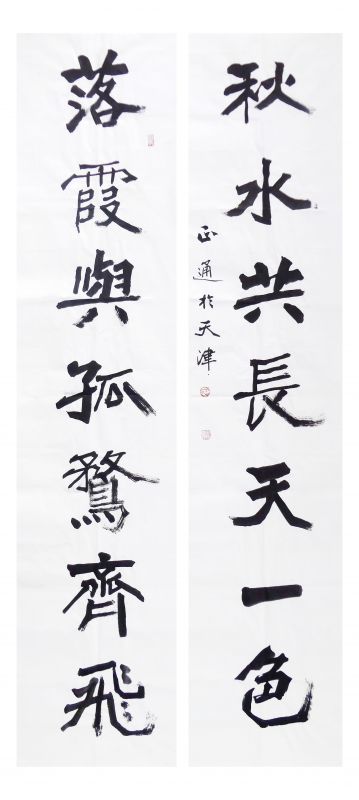 落霞與孤鶩齊飛
秋水共長天一色
正通於天津